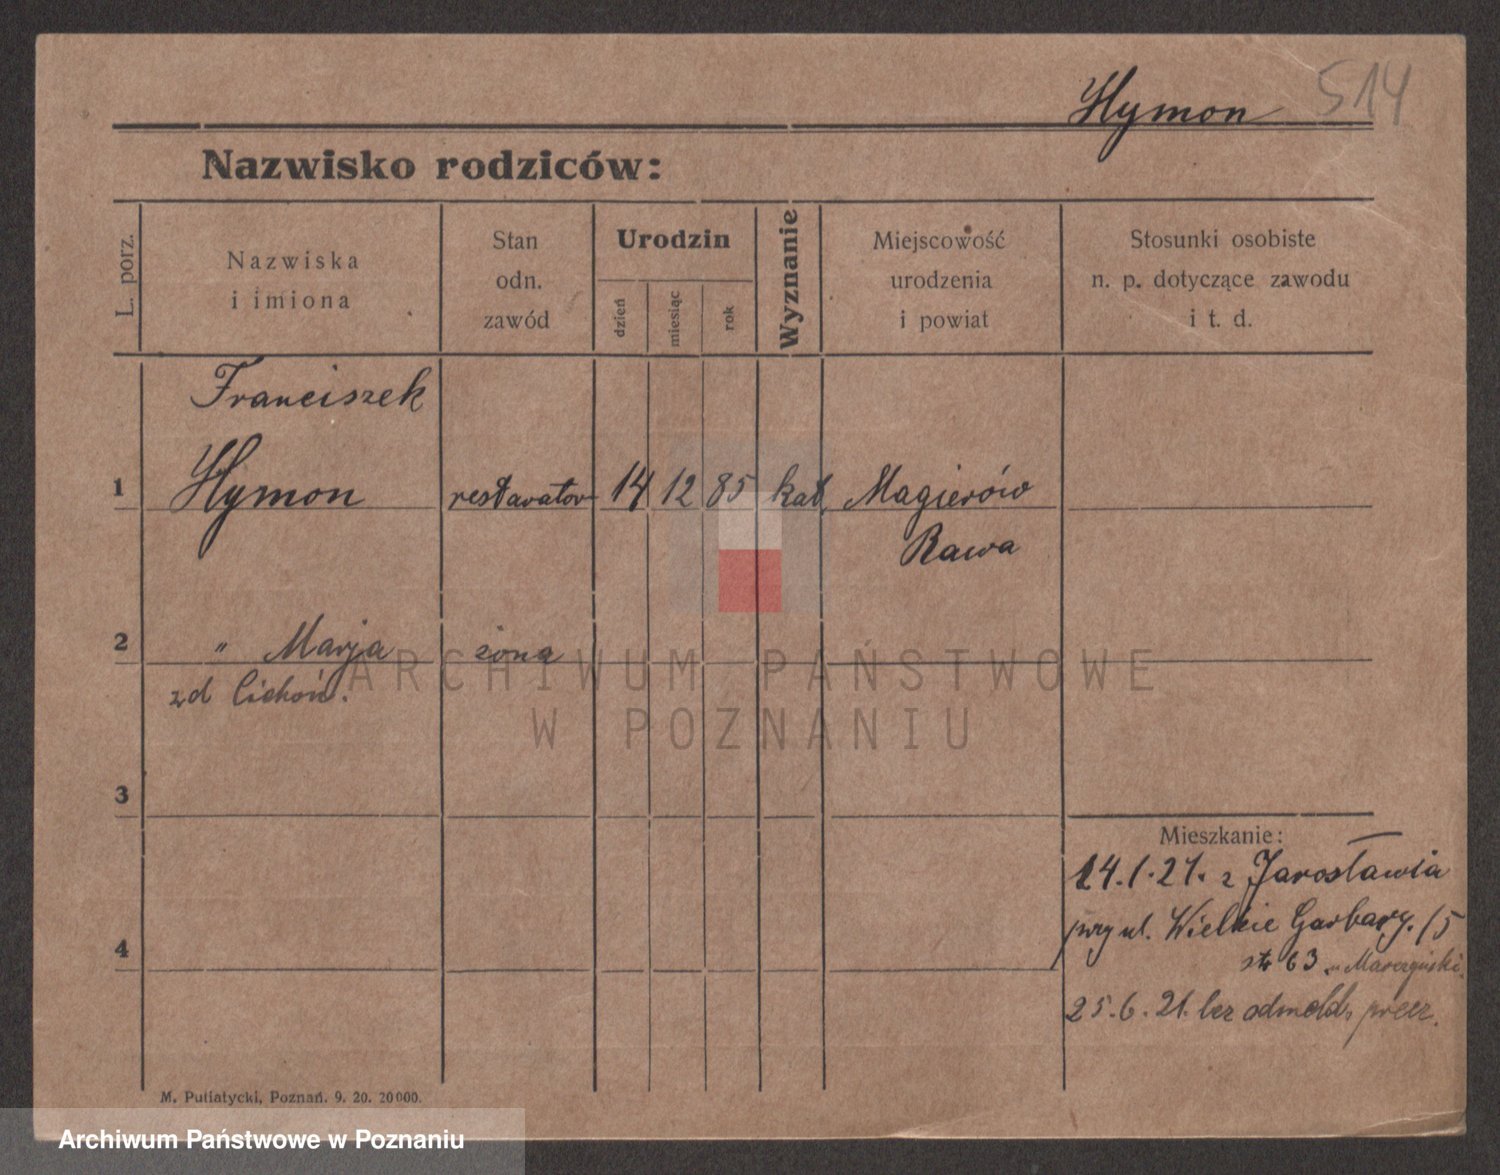 Hymon 514
Nazwisko rodziców:
L. porz.
Nazwiska
i imiona
Stan
odn.
zawód
Urodzin
dzień
miesiąc
rok
Wyznanie
Miejscowość
urodzenia
i powiat
Stosunki osobiste
n. p. dotyczące zawodu
i t. d.
Franciszek
1 Hymon restavator 14 12 85 kat. Magierów
Rawa
2 " Marja żona
zd Cichoń.
ARCHIWUM PAŃSTWOWE
W POZNANIU
3
Mieszkanie:
14.1.21. z Jarosławia
przy ul. Wielkie Garbary. 15
4
str 63
25.6.21. bez odmeld. precz.
M. Putiatycki, Poznań. 9. 20. 20000.
Archiwum Państwowe w Poznaniu